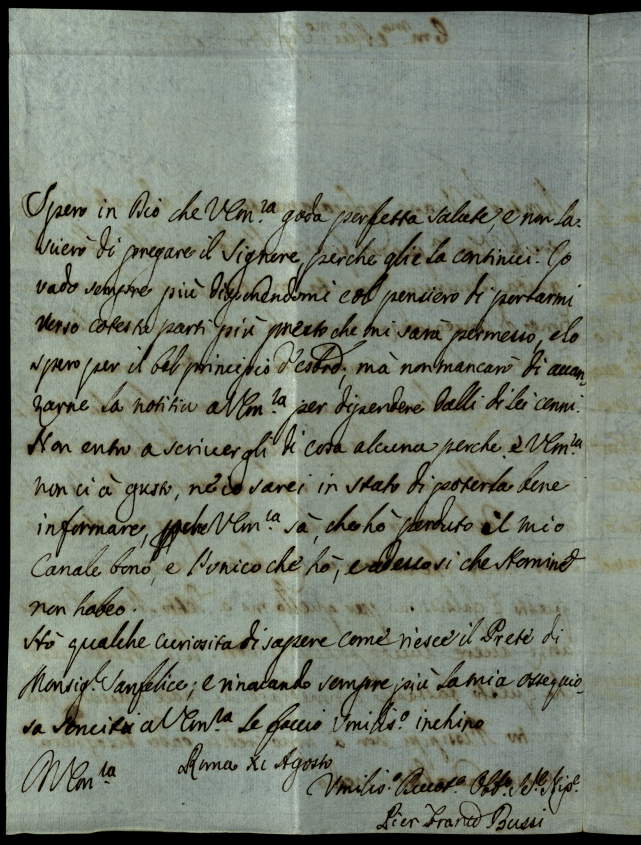 Spero in Dio che VEm.za goda perfetta salute, e non la-
scierò di pregare il Signore, perche glie la continui. Io
vado sempre più disponendomi col pensiero di portarmi
verso coteste parti più presto che mi sarà permesso, e lo
spero per il bel principio d' mà non mancarò di auan-
zarne la notitia a VEm.za per dipendere dalli di lei cenni.
Non entro a scriuergli di cosa alcuna perche, e VEm.za
non ci à gusto, nè io sarei in stato di poterla bene
informare, VEm.za sà, che hò perduto il mio
Canale bono, e l'unico che hò, e adesso si che Hominem
non habeo.
Hò qualche curiosita di sapere come riesce il Prete di
Monsig.r Sanfelice; e rinouando sempre più la mia ossequio-
sa seruitù a VEm.za le faccio Vmiliss.o inchino
VEm.za
Roma XI Agosto
Vmiliss.o Nip.e
Pier Franc.o Bussi